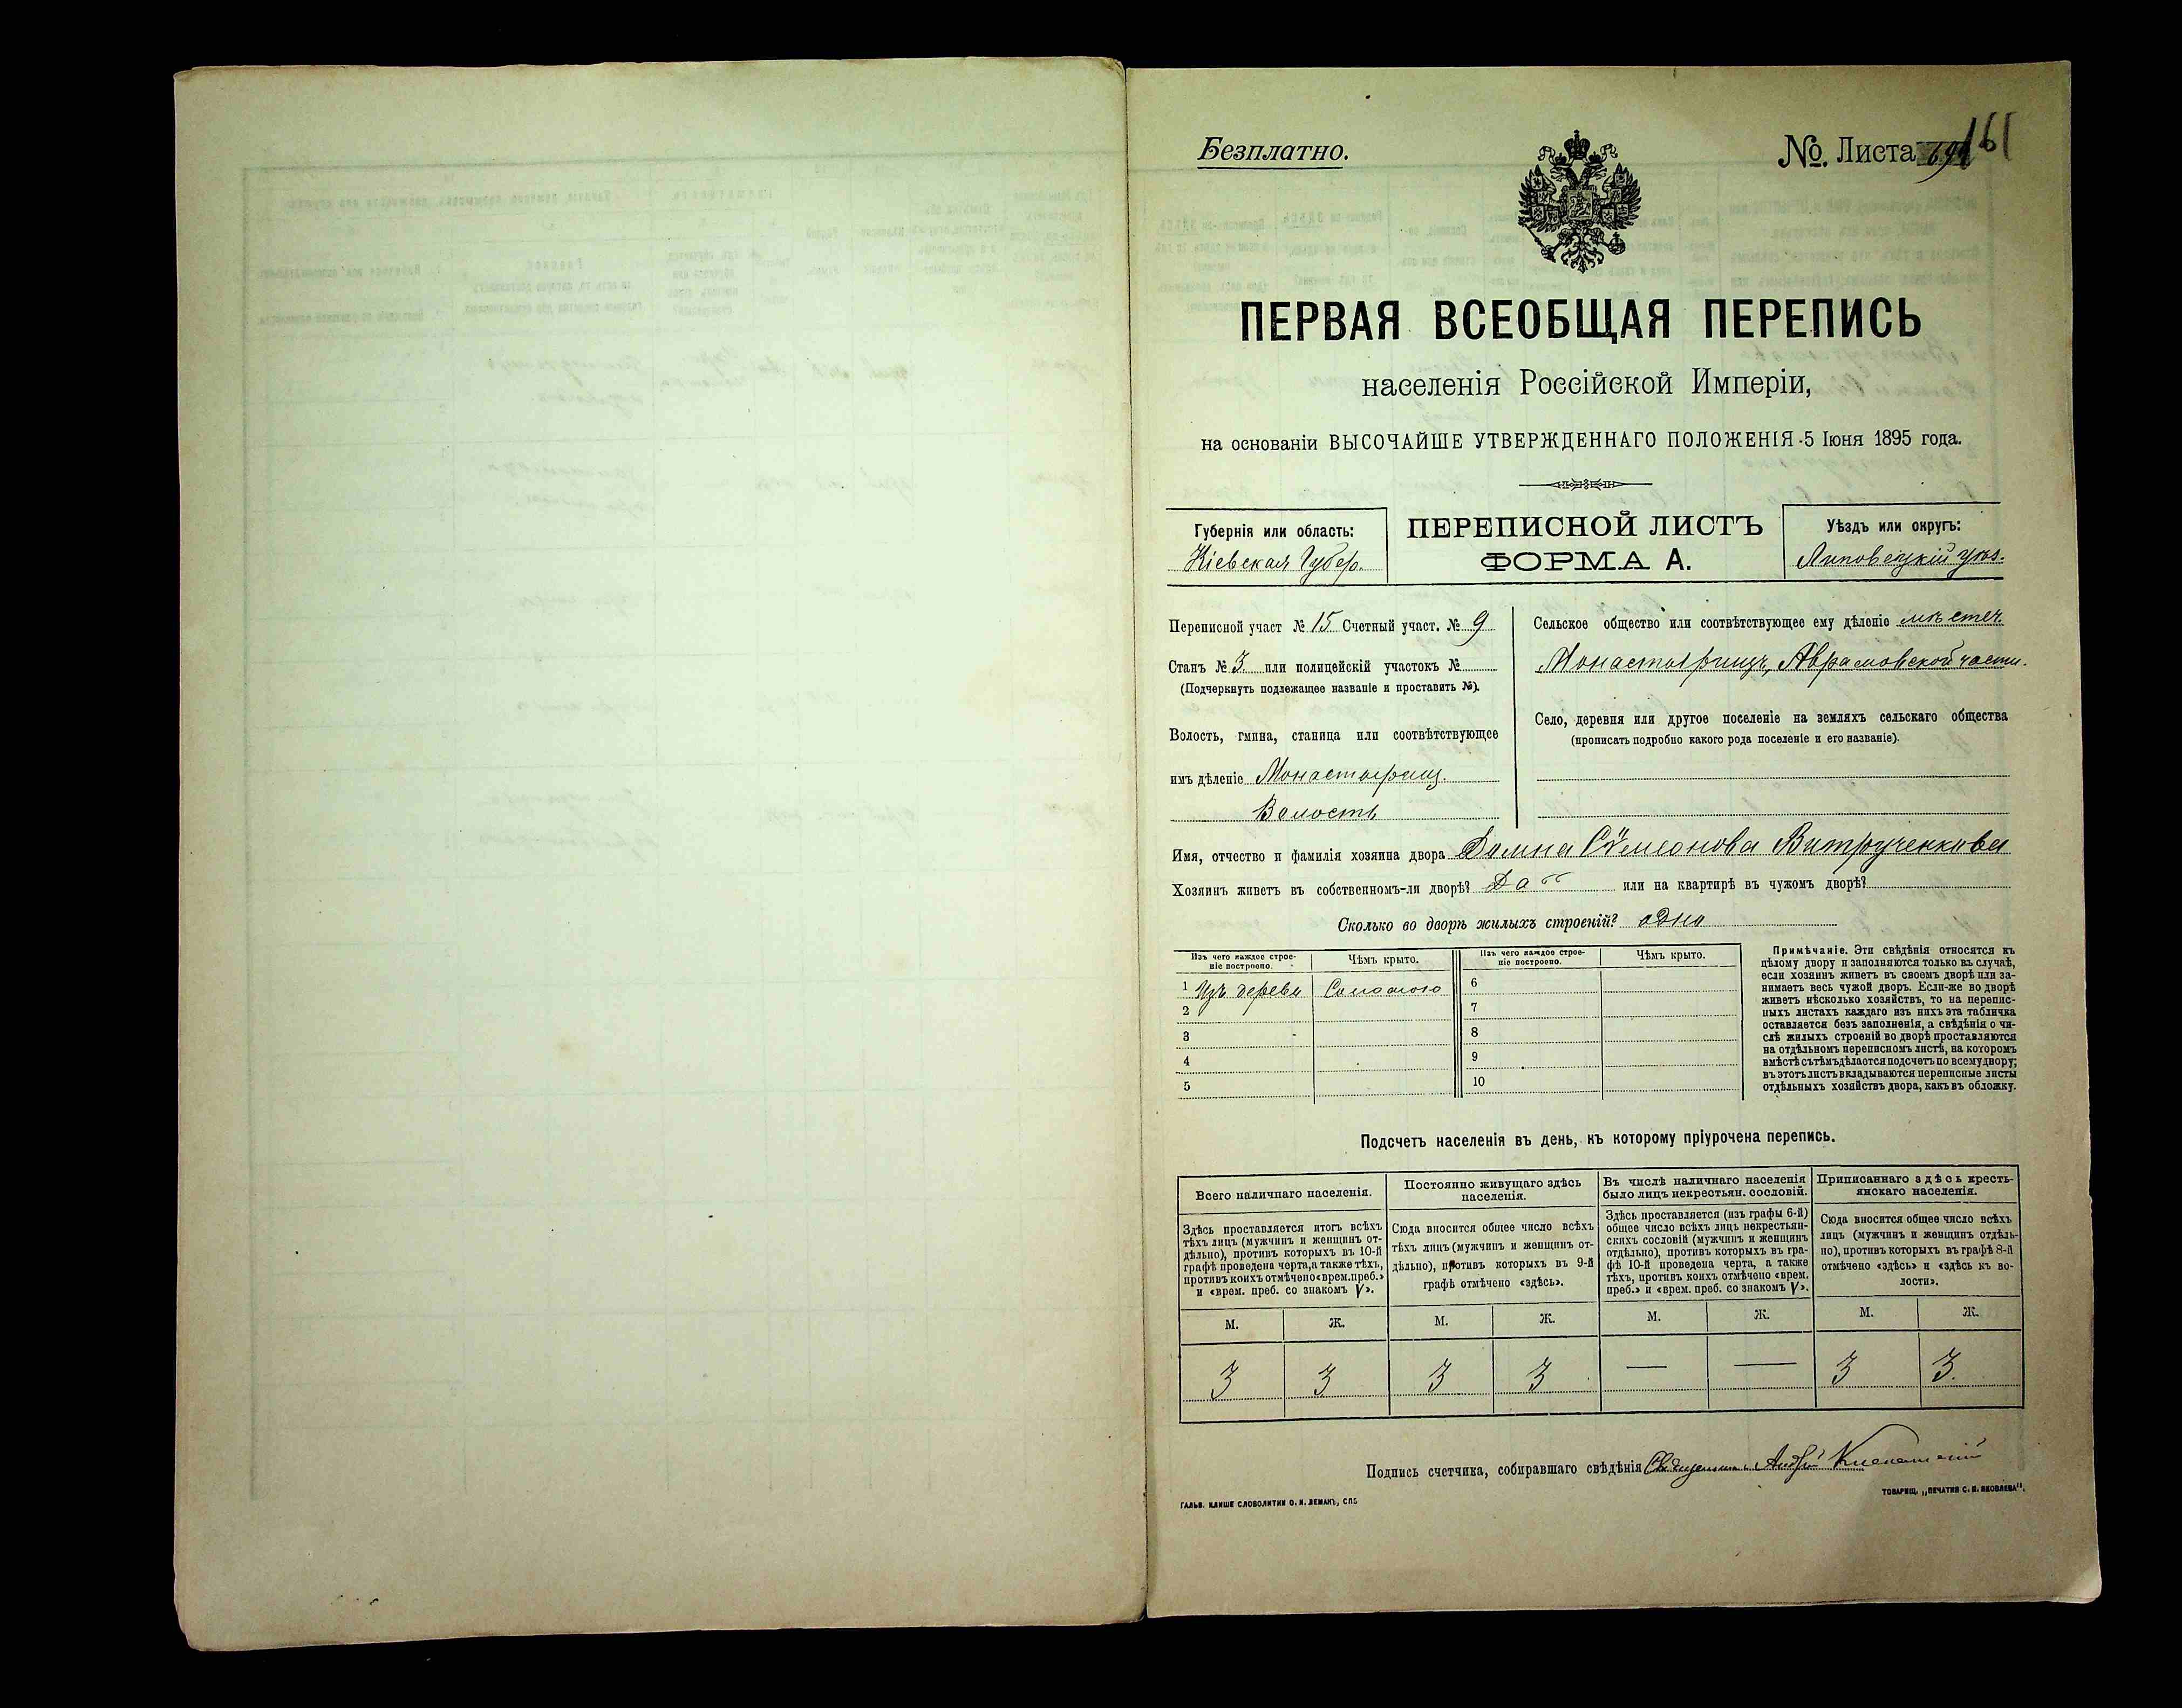 Безплатно.
№. Листа 161
ПЕРВАЯ ВСЕОБЩАЯ ПЕРЕПИСЬ
населенія Россійской Имперіи,
на основаніи ВЫСОЧАЙШЕ УТВЕРЖДЕННАГО ПОЛОЖЕНІЯ 5 Іюня 1895 года.
Губернія или область:
Кіевская Губер.
ПЕРЕПИСНОЙ ЛИСТЪ
ФОРМА А.
Уѣздъ или округъ:
Липовецкій уѣз.
Переписной участ № 15 Счетный участ. № 9
Станъ № 3 или полицейскій участокъ №
(Подчеркнуть подлежащее названіе и проставить №).
Волость, гмина, станица или соотвѣтствующее
имъ дѣленіе Монастырищ.
Волость
Сельское общество или соотвѣтствующее ему дѣленіе мѣстеч.
Монастырищъ, Аврамовской части.
Село, деревня или другое поселеніе на земляхъ сельскаго общества
(прописать подробно какого рода поселеніе и его названіе).
Имя, отчество и фамилія хозяина двора Домна Семионова Витрученкова
Хозяинъ живетъ въ собственномъ-ли дворѣ? Да или на квартирѣ въ чужомъ дворѣ?
Сколько во дворѣ жилыхъ строеній? одно
Изъ чего каждое строе-
ніе построено.
Чѣмъ крыто.
Изъ чего каждое строе-
ніе построено.
Чѣмъ крыто.
1 Изъ дерева Соломою 6
2 7
3 8
4 9
5 10
Примѣчаніе. Эти свѣдѣнія относятся къ
цѣлому двору и заполняются только въ случаѣ,
если хозяинъ живетъ въ своемъ дворѣ или за-
нимаетъ весь чужой дворъ. Если-же во дворѣ
живетъ нѣсколько хозяйствъ, то на перепис-
ныхъ листахъ каждаго изъ нихъ эта табличка
оставляется безъ заполненія, а свѣдѣнія о чи-
слѣ жилыхъ строеній во дворѣ проставляются
на отдѣльномъ переписномъ листѣ, на которомъ
вмѣстѣ съ тѣмъ дѣлается подсчетъ по всему двору;
въ этотъ листъ вкладываются переписные листы
отдѣльныхъ хозяйствъ двора, какъ въ обложку.
Подсчетъ населенія въ день, къ которому пріурочена перепись.
Всего наличнаго населенія.
Постоянно живущаго здѣсь
населенія.
Въ числѣ наличнаго населенія
было лицъ некрестьян. сословій.
Приписаннаго здѣсь кресть-
янскаго населенія.
Здѣсь проставляется итогъ всѣхъ
тѣхъ лицъ (мужчинъ и женщинъ от-
дѣльно), противъ которыхъ въ 10-й
графѣ проведена черта, а также тѣхъ,
противъ коихъ отмѣчено «врем. преб.»
и «врем. преб. со знакомъ V».
Сюда вносится общее число всѣхъ
тѣхъ лицъ (мужчинъ и женщинъ от-
дѣльно), противъ которыхъ въ 9-й
графѣ отмѣчено «здѣсь».
Здѣсь проставляется (изъ графы 6-й)
общее число всѣхъ лицъ некрестьян-
скихъ сословій (мужчинъ и женщинъ
отдѣльно), противъ которыхъ въ гра-
фѣ 10-й проведена черта, а также
тѣхъ, противъ коихъ отмѣчено «врем.
преб.» и «врем. преб. со знакомъ V».
Сюда вносится общее число всѣхъ
лицъ (мужчинъ и женщинъ отдѣль-
но), противъ которыхъ въ графѣ 8-й
отмѣчено «здѣсь» и «здѣсь къ во-
лости».
М. Ж. М. Ж. М. Ж. М. Ж.
3 3 3 3 — — 3 3.
Подпись счетчика, собиравшаго свѣдѣнія Андрей
ГАЛЬВ. КЛИШЕ СЛОВОЛИТНИ О. И. ЛЕМАНЪ, СПБ
ТОВАРИЩ. „ПЕЧАТНЯ С. П. ЯКОВЛЕВА".